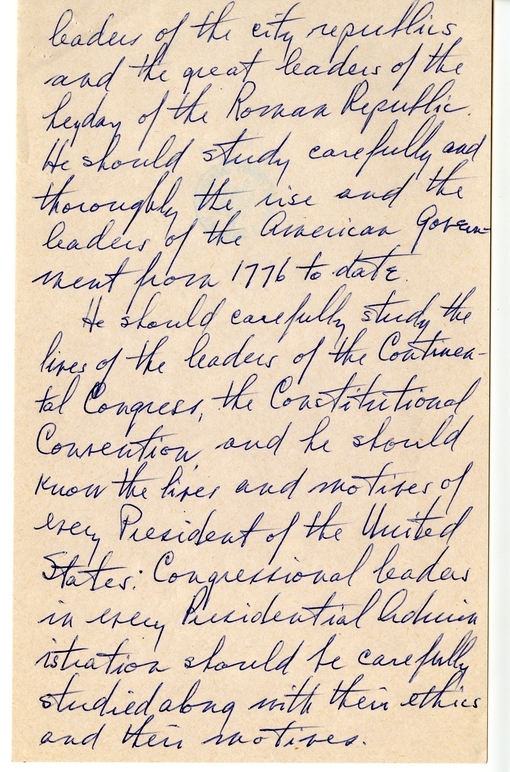 leaders of the city republics
and the great leaders of the
heyday of the Roman Republic.
He should study carefully and
thoroughly the rise and the
leaders of the American Govern-
ment from 1776 to date.
He should carefully study the
lives of the leaders of the Continen-
tal Congress, the Constitutional
Convention, and he should
know the lives and motives of
every President of the United
States: Congressional leaders
in every Presidential Admin
istration should be carefully
studied along with their ethics
and their motives.